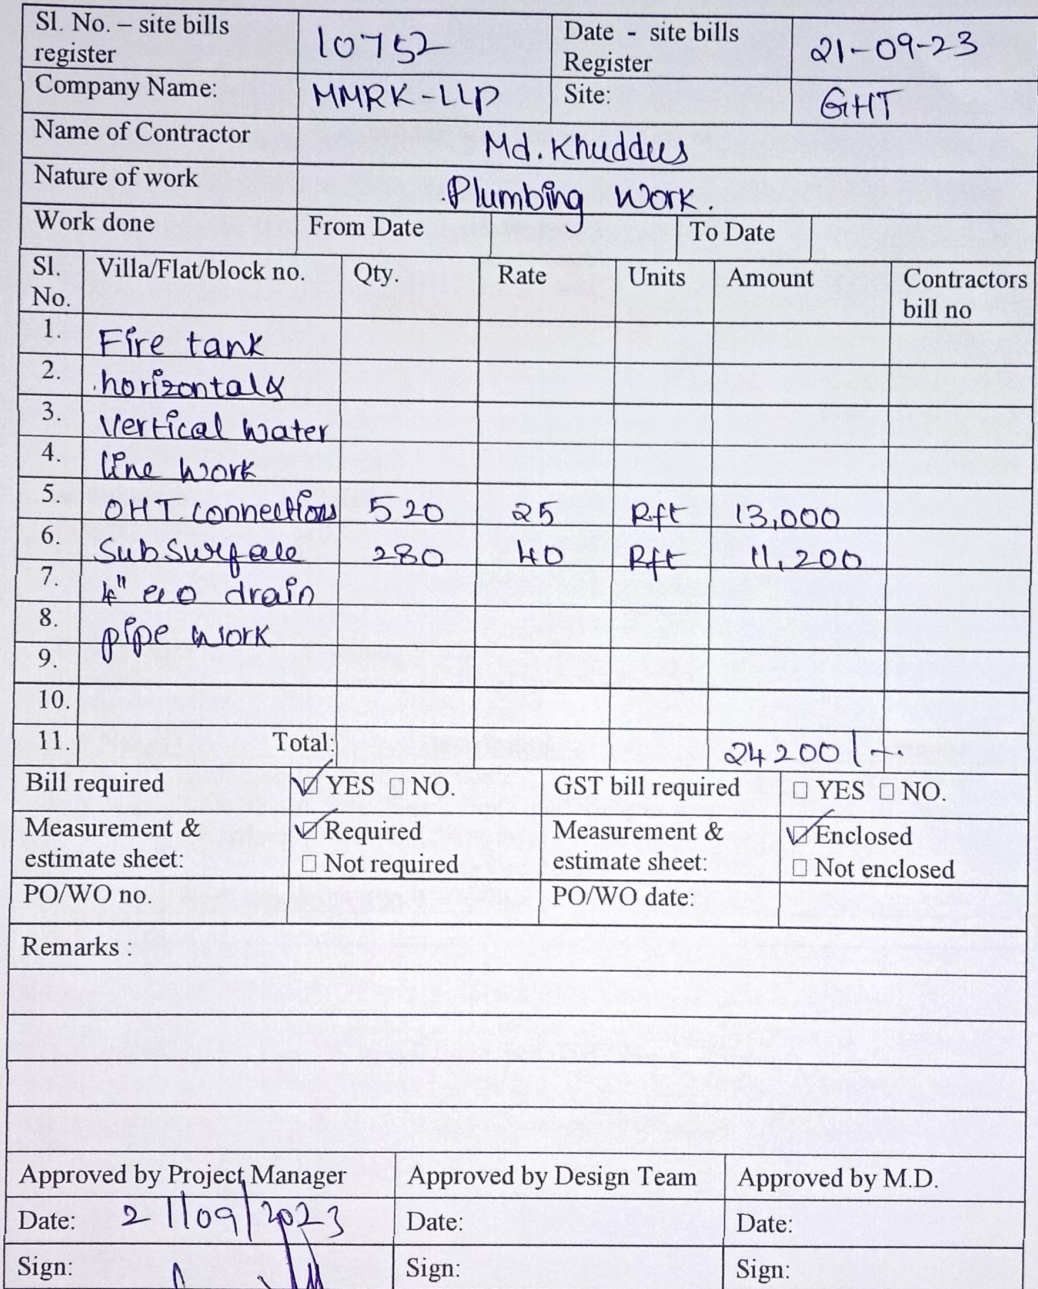 Sl. No. – site bills register 10752 Date - site bills Register 21-09-23
Company Name: MMRK-LLP Site: GHT
Name of Contractor Md. Khuddus
Nature of work Plumbing Work
Work done From Date To Date
Sl. No. Villa/Flat/block no. Qty. Rate Units Amount Contractors bill no
1. Fire tank
2. horizontal &
3. Vertical water
4. line work
5. OHT connections 520 25 Rft 13,000
6. Subsurface 280 40 Rft 11,200
7. 4" drain
8. pipe work
9.
10.
11. Total: 24200/-
Bill required ☑ YES ☐ NO. GST bill required ☐ YES ☐ NO.
Measurement & estimate sheet: ☑ Required ☐ Not required Measurement & estimate sheet: ☑ Enclosed ☐ Not enclosed
PO/WO no. PO/WO date:
Remarks :
Approved by Project Manager Approved by Design Team Approved by M.D.
Date: 21/09/2023 Date: Date:
Sign: Sign: Sign: